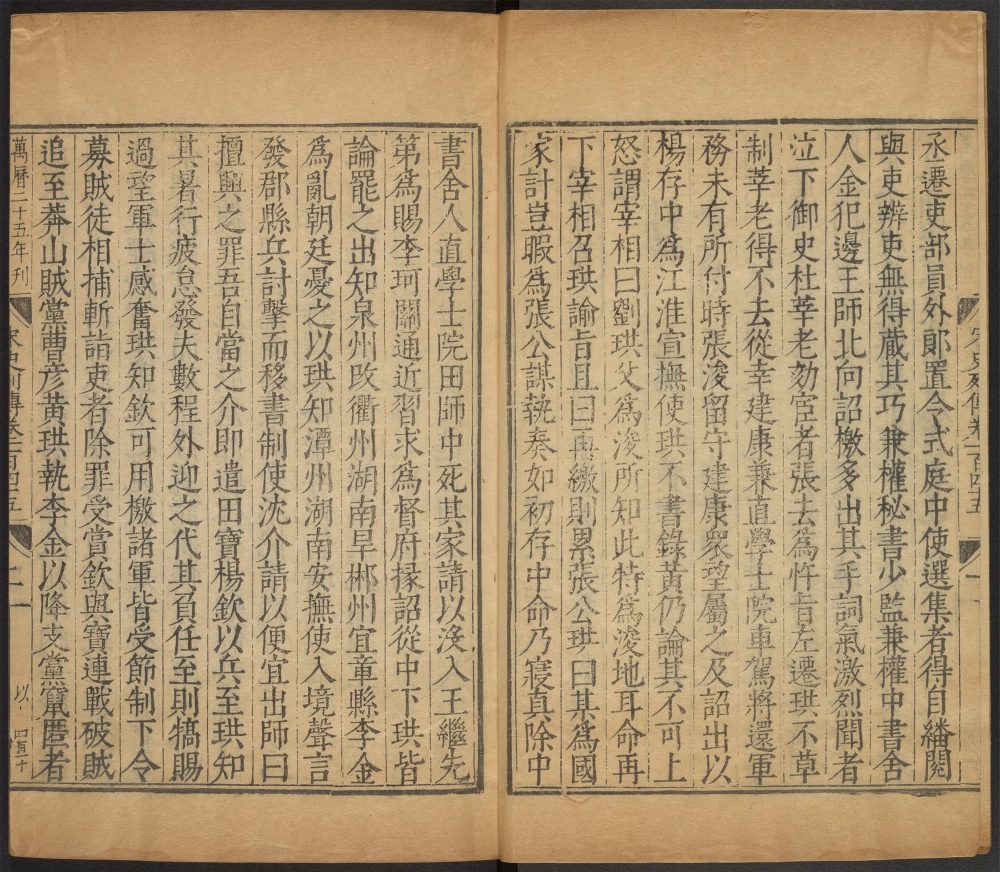 宋史列傳卷一百四五
一
丞遷吏部員外郎置令式庭中使選集者得自繙閱
與吏辨吏無得藏其巧兼權秘書少監兼權中書舍
人金犯邊王師北向詔檄多出其手詞氣激烈聞者
泣下御史杜莘老劾宦者張去爲忤旨左遷珙不草
制莘老得不去從幸建康兼直學士院車駕將還軍
務未有所付時張浚留守建康衆望屬之及詔出以
楊存中爲江淮宣撫使珙不書錄黃仍論其不可上
怒謂宰相曰劉珙父爲浚所知此特爲浚地耳命再
下宰相召珙諭旨且曰再繳則累張公珙曰某爲國
家計豈暇爲張公謀執奏如初存中命乃寢真除中
書舍人直學士院田師中死其家請以沒入王繼先
第爲賜李珂關通近習求爲督府掾詔從中下珙皆
論罷之出知泉州改衢州湖南旱郴州宜章縣李金
爲亂朝廷憂之以珙知潭州湖南安撫使入境聲言
發郡縣兵討擊而移書制使沈介請以便宜出師曰
擅興之罪吾自當之介即遣田寶楊欽以兵至珙知
其暑行疲怠發夫數程外迎之代其負任至則犒賜
過望軍士感奮珙知欽可用檄諸軍皆受節制下令
募賊徒相捕斬詣吏者除罪受賞欽與寶連戰破賊
追至莽山賊黨曹彦黃珙執李金以降支黨竄匿者
萬曆二十五年刊
宋史列傳卷一百四五
二
以